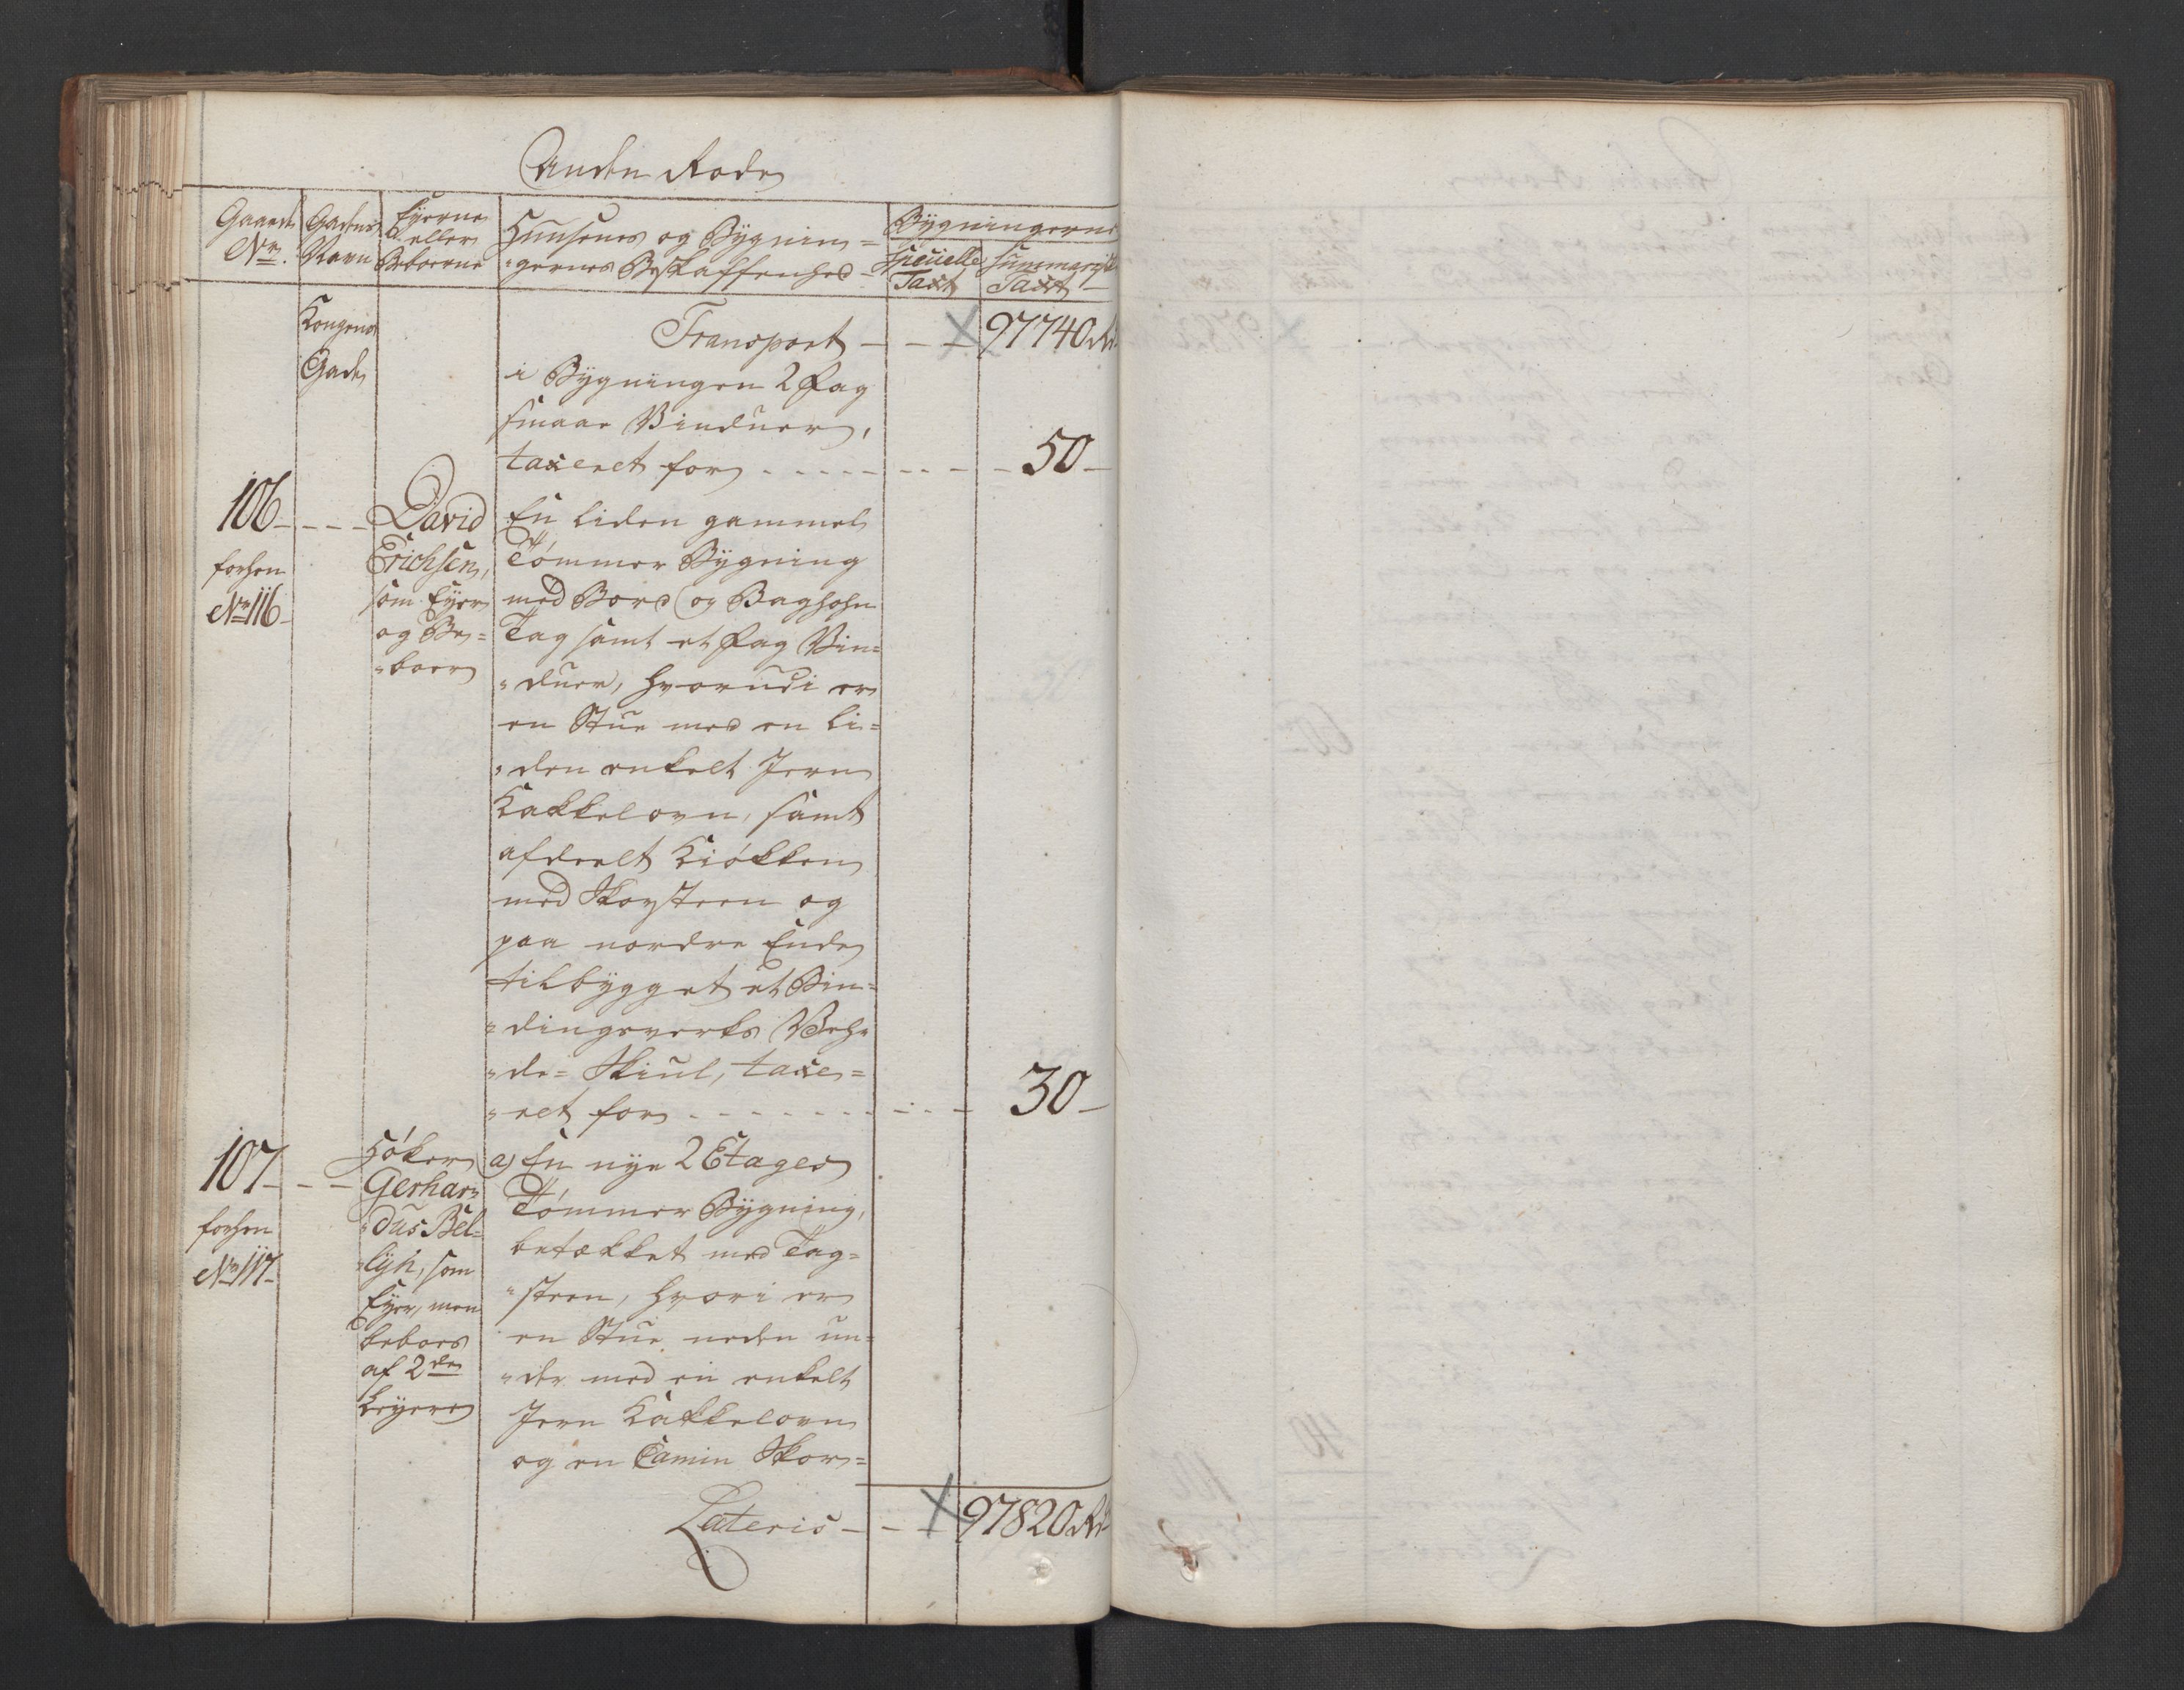 Anden Rode
Gaardens No.
Gadens Navn
Eyerne eller Beboerne
Huusenes og Bygnin=
"gernes Beskaffenhed
Bygningernes
specielle Taxt
summariske Taxt
Kongens
Gade
Transport - - - 97740 Rd
i Bygningen 2 Fag
smaae Vinduer,
taxeret for - - - - - 50 -
106 - - - David
forhen
No 116
Erichsen,
som Eyer
og Be=
"boer
En liden gammel
Tømmer Bygning
med Bord og Baghohn
Tag samt et Fag Vin=
"duer, hvorudi er
en Stue med en li=
"den enkelt Jern
Kakkelovn, samt
afdeelt Kiøkken
med Skorsteen og
paa nordre Ende
tilbygget et Bin=
"dingsverks Vehe
"de= Skiul, taxe=
"ret for - - - - - 30 -
107 - - - Høker
forhen
No 117
Gerhar=
"dus Bel=
"lyn, som
Eyer, men
beboes
af 2de
Leyere
a) En nye 2 Etages
Tømmer Bygning,
betækket med Tag=
"steen, hvori er
en Stue neden un=
"der med en enkelt
Jern Kakkelovn
og en Camin Skor=
Lateris - - - 97820 Rd